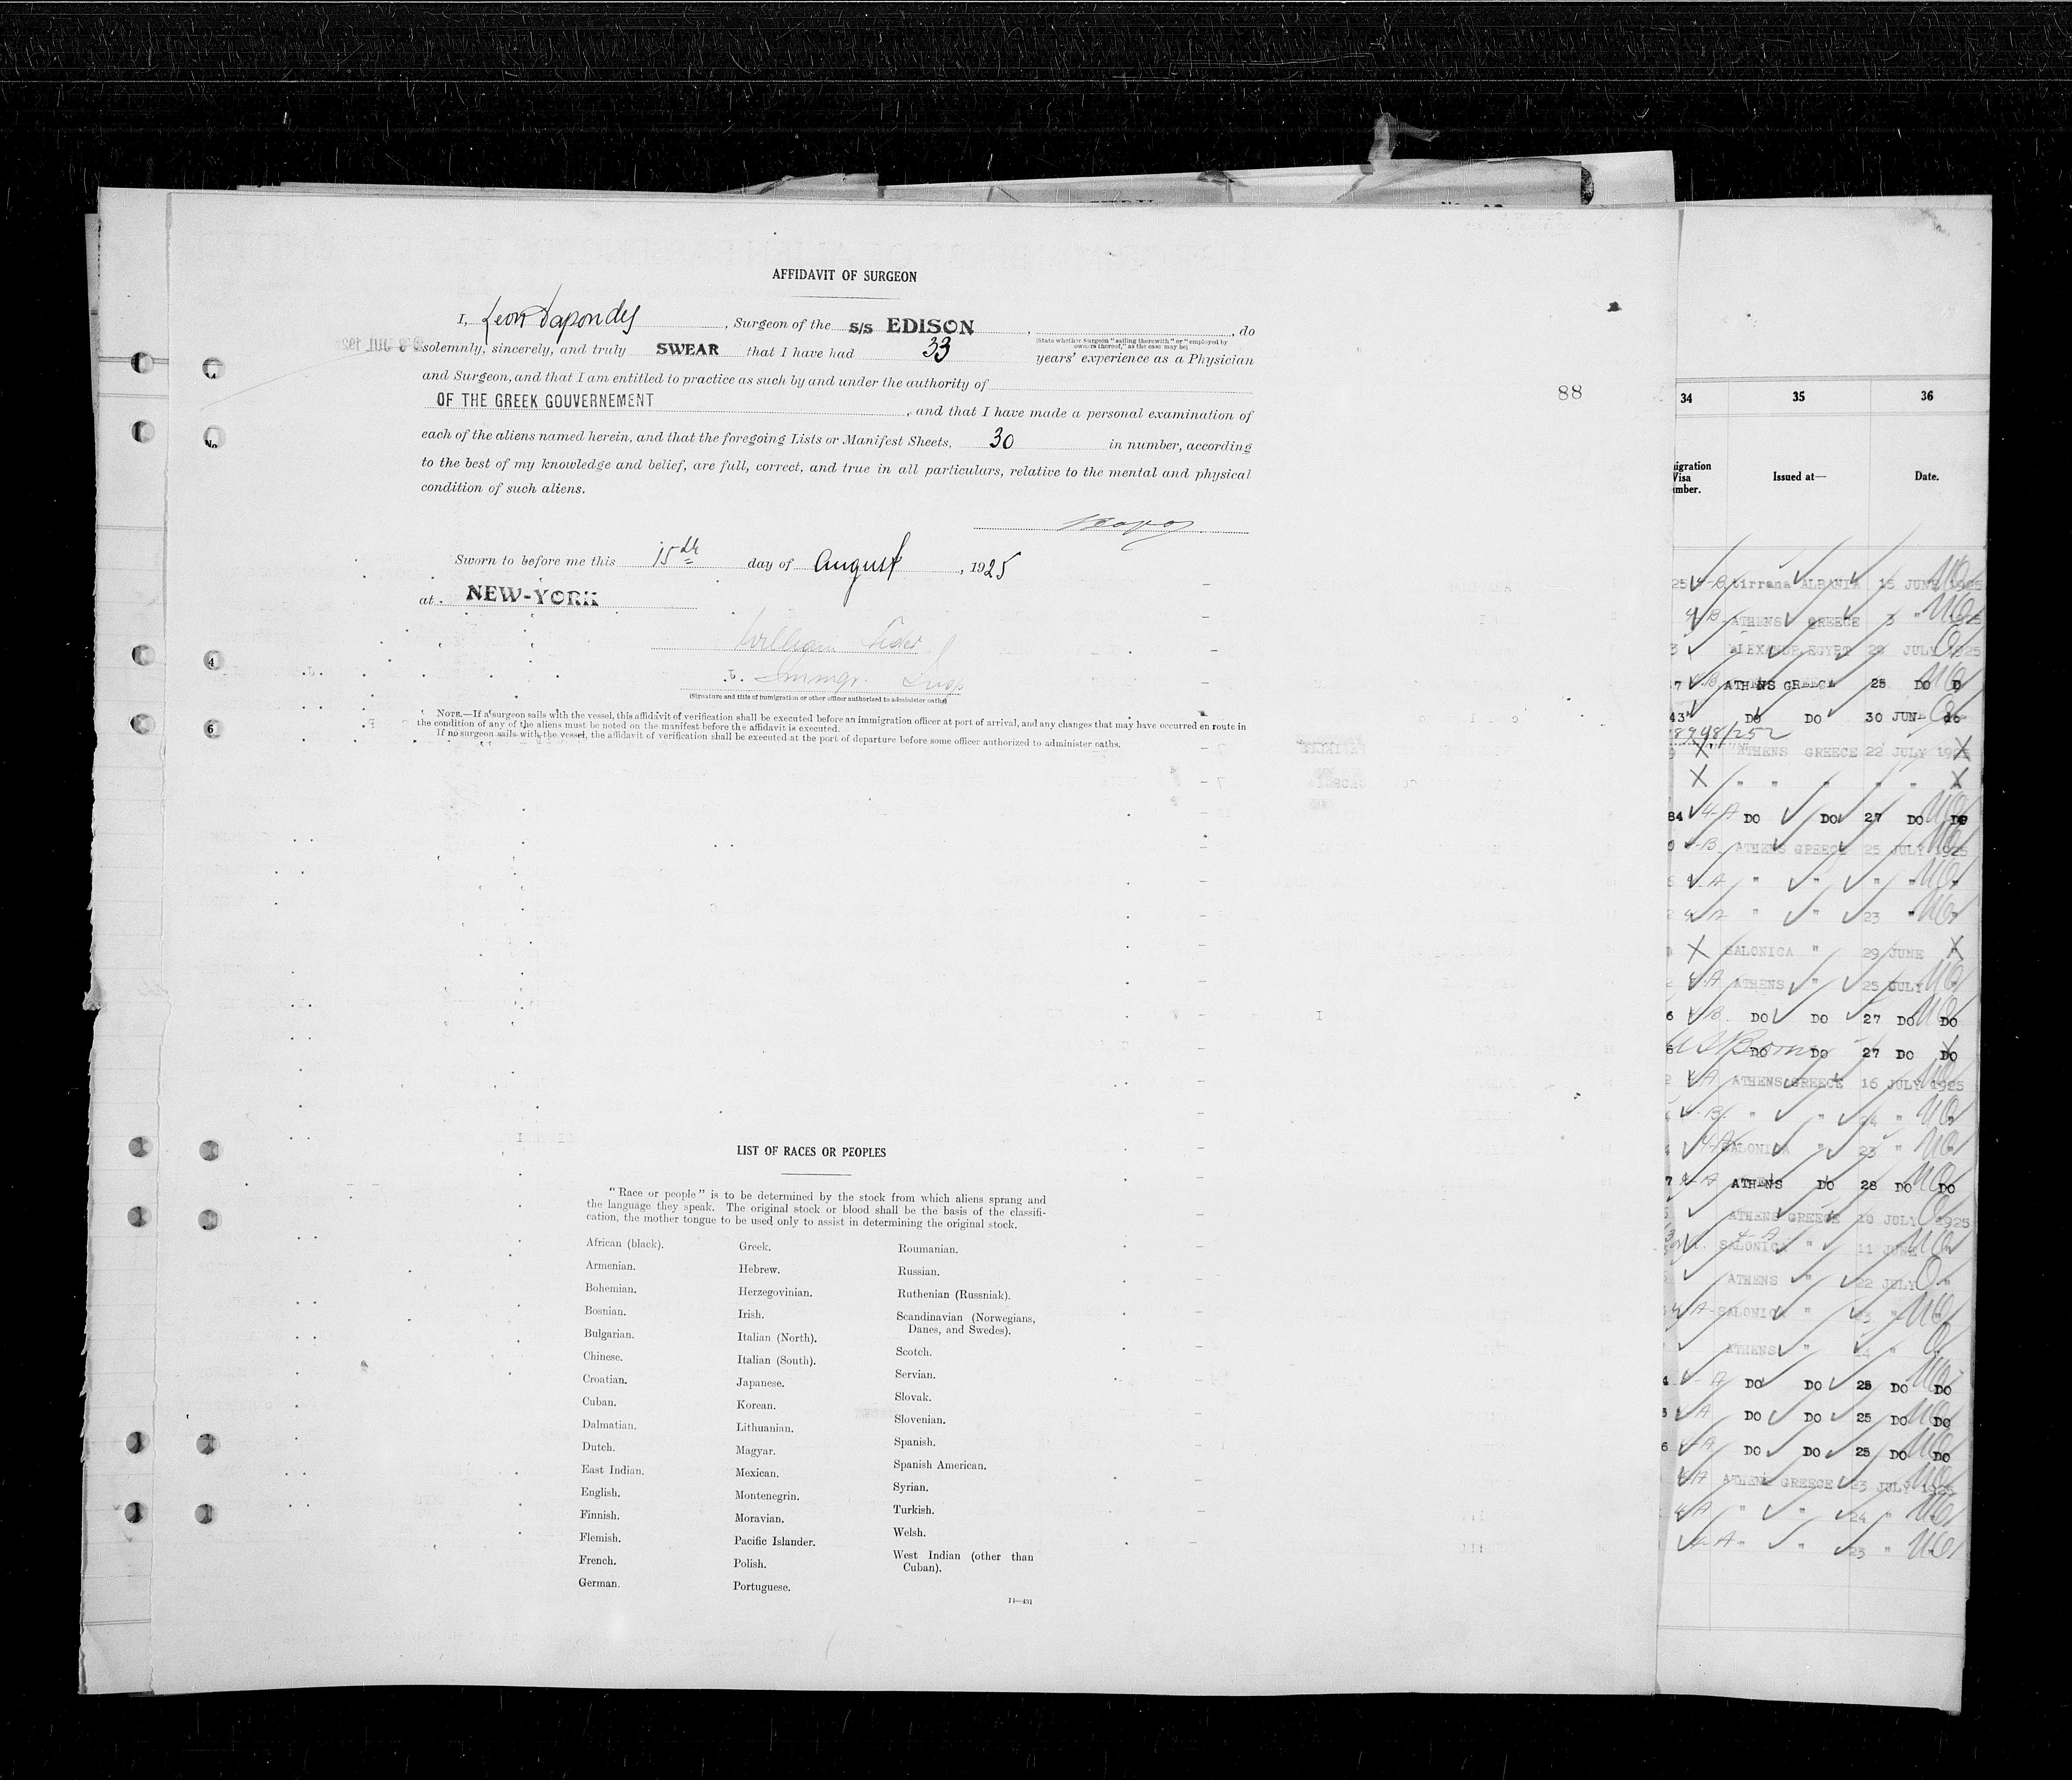 AFFIDAVIT OF SURGEON
I, Leon Dapondes, Surgeon of the S/S EDISON, , do
(State whether Surgeon "sailing therewith" or "employed by
owners thereof," as the case may be)
solemnly, sincerely, and truly SWEAR that I have had 33 years' experience as a Physician
and Surgeon, and that I am entitled to practice as such by and under the authority of
OF THE GREEK GOUVERNEMENT , and that I have made a personal examination of
each of the aliens named herein, and that the foregoing Lists or Manifest Sheets, 30 in number, according
to the best of my knowledge and belief, are full, correct, and true in all particulars, relative to the mental and physical
condition of such aliens.
Sworn to before me this 15th day of August, 1925
at NEW-YORK
William
Immgr. Insp
(Signature and title of immigration or other officer authorized to administer oaths)
NOTE.—If a surgeon sails with the vessel, this affidavit of verification shall be executed before an immigration officer at port of arrival, and any changes that may have occurred en route in
the condition of any of the aliens must be noted on the manifest before the affidavit is executed.
If no surgeon sails with the vessel, the affidavit of verification shall be executed at the port of departure before some officer authorized to administer oaths.
88
4
6
LIST OF RACES OR PEOPLES
"Race or people" is to be determined by the stock from which aliens sprang and
the language they speak. The original stock or blood shall be the basis of the classifi-
cation, the mother tongue to be used only to assist in determining the original stock.
African (black).
Armenian.
Bohemian.
Bosnian.
Bulgarian.
Chinese.
Croatian.
Cuban.
Dalmatian.
Dutch.
East Indian.
English.
Finnish.
Flemish.
French.
German.
Greek.
Hebrew.
Herzegovinian.
Irish.
Italian (North).
Italian (South).
Japanese.
Korean.
Lithuanian.
Magyar.
Mexican.
Montenegrin.
Moravian.
Pacific Islander.
Polish.
Portuguese.
Roumanian.
Russian.
Ruthenian (Russniak).
Scandinavian (Norwegians,
Danes, and Swedes).
Scotch.
Servian.
Slovak.
Slovenian.
Spanish.
Spanish American.
Syrian.
Turkish.
Welsh.
West Indian (other than
Cuban).
14—431
34 35 36
igration
Visa
mber.
Issued at—
Date.
Tirrana ALBANIA 15 JUNE 1925
4 B ATHENS GREECE 3 " 1925
ALEXANDR. EGYPT 28 JULY 1925
7 4-B ATHENS GREECE 25 DO D
43 DO DO 30 JUN
8998/252
ATHENS GREECE 22 JULY 1925
X " " " " " X
84 4-A DO DO 27 DO DO
4-B ATHENS GREECE 25 JULY 1925
4-A " " " "
4-A " " 23 "
X SALONICA " 29 JUNE X
4-A ATHENS " 25 JULY
6 4-B DO DO 27 DO DO
6 US Born DO DO 27 DO DO
4-A ATHENS GREECE 16 JULY 1925
4-B " " 24 "
4-A SALONICA " 23 "
7 4-A ATHENS DO 28 DO DO
ATHENS GREECE 10 JULY 1925
4-A SALONICA " 11 JUNE
ATHENS " 22 JULY "
4-A SALONICA " 23 "
ATHENS " 14 "
4 4-A DO DO 25 DO DO
5 4-A DO DO 25 DO DO
6 4-A DO DO 25 DO DO
4-A ATHENS GREECE 23 JULY 1925
4-A " " 24 "
4-A " " 23 "